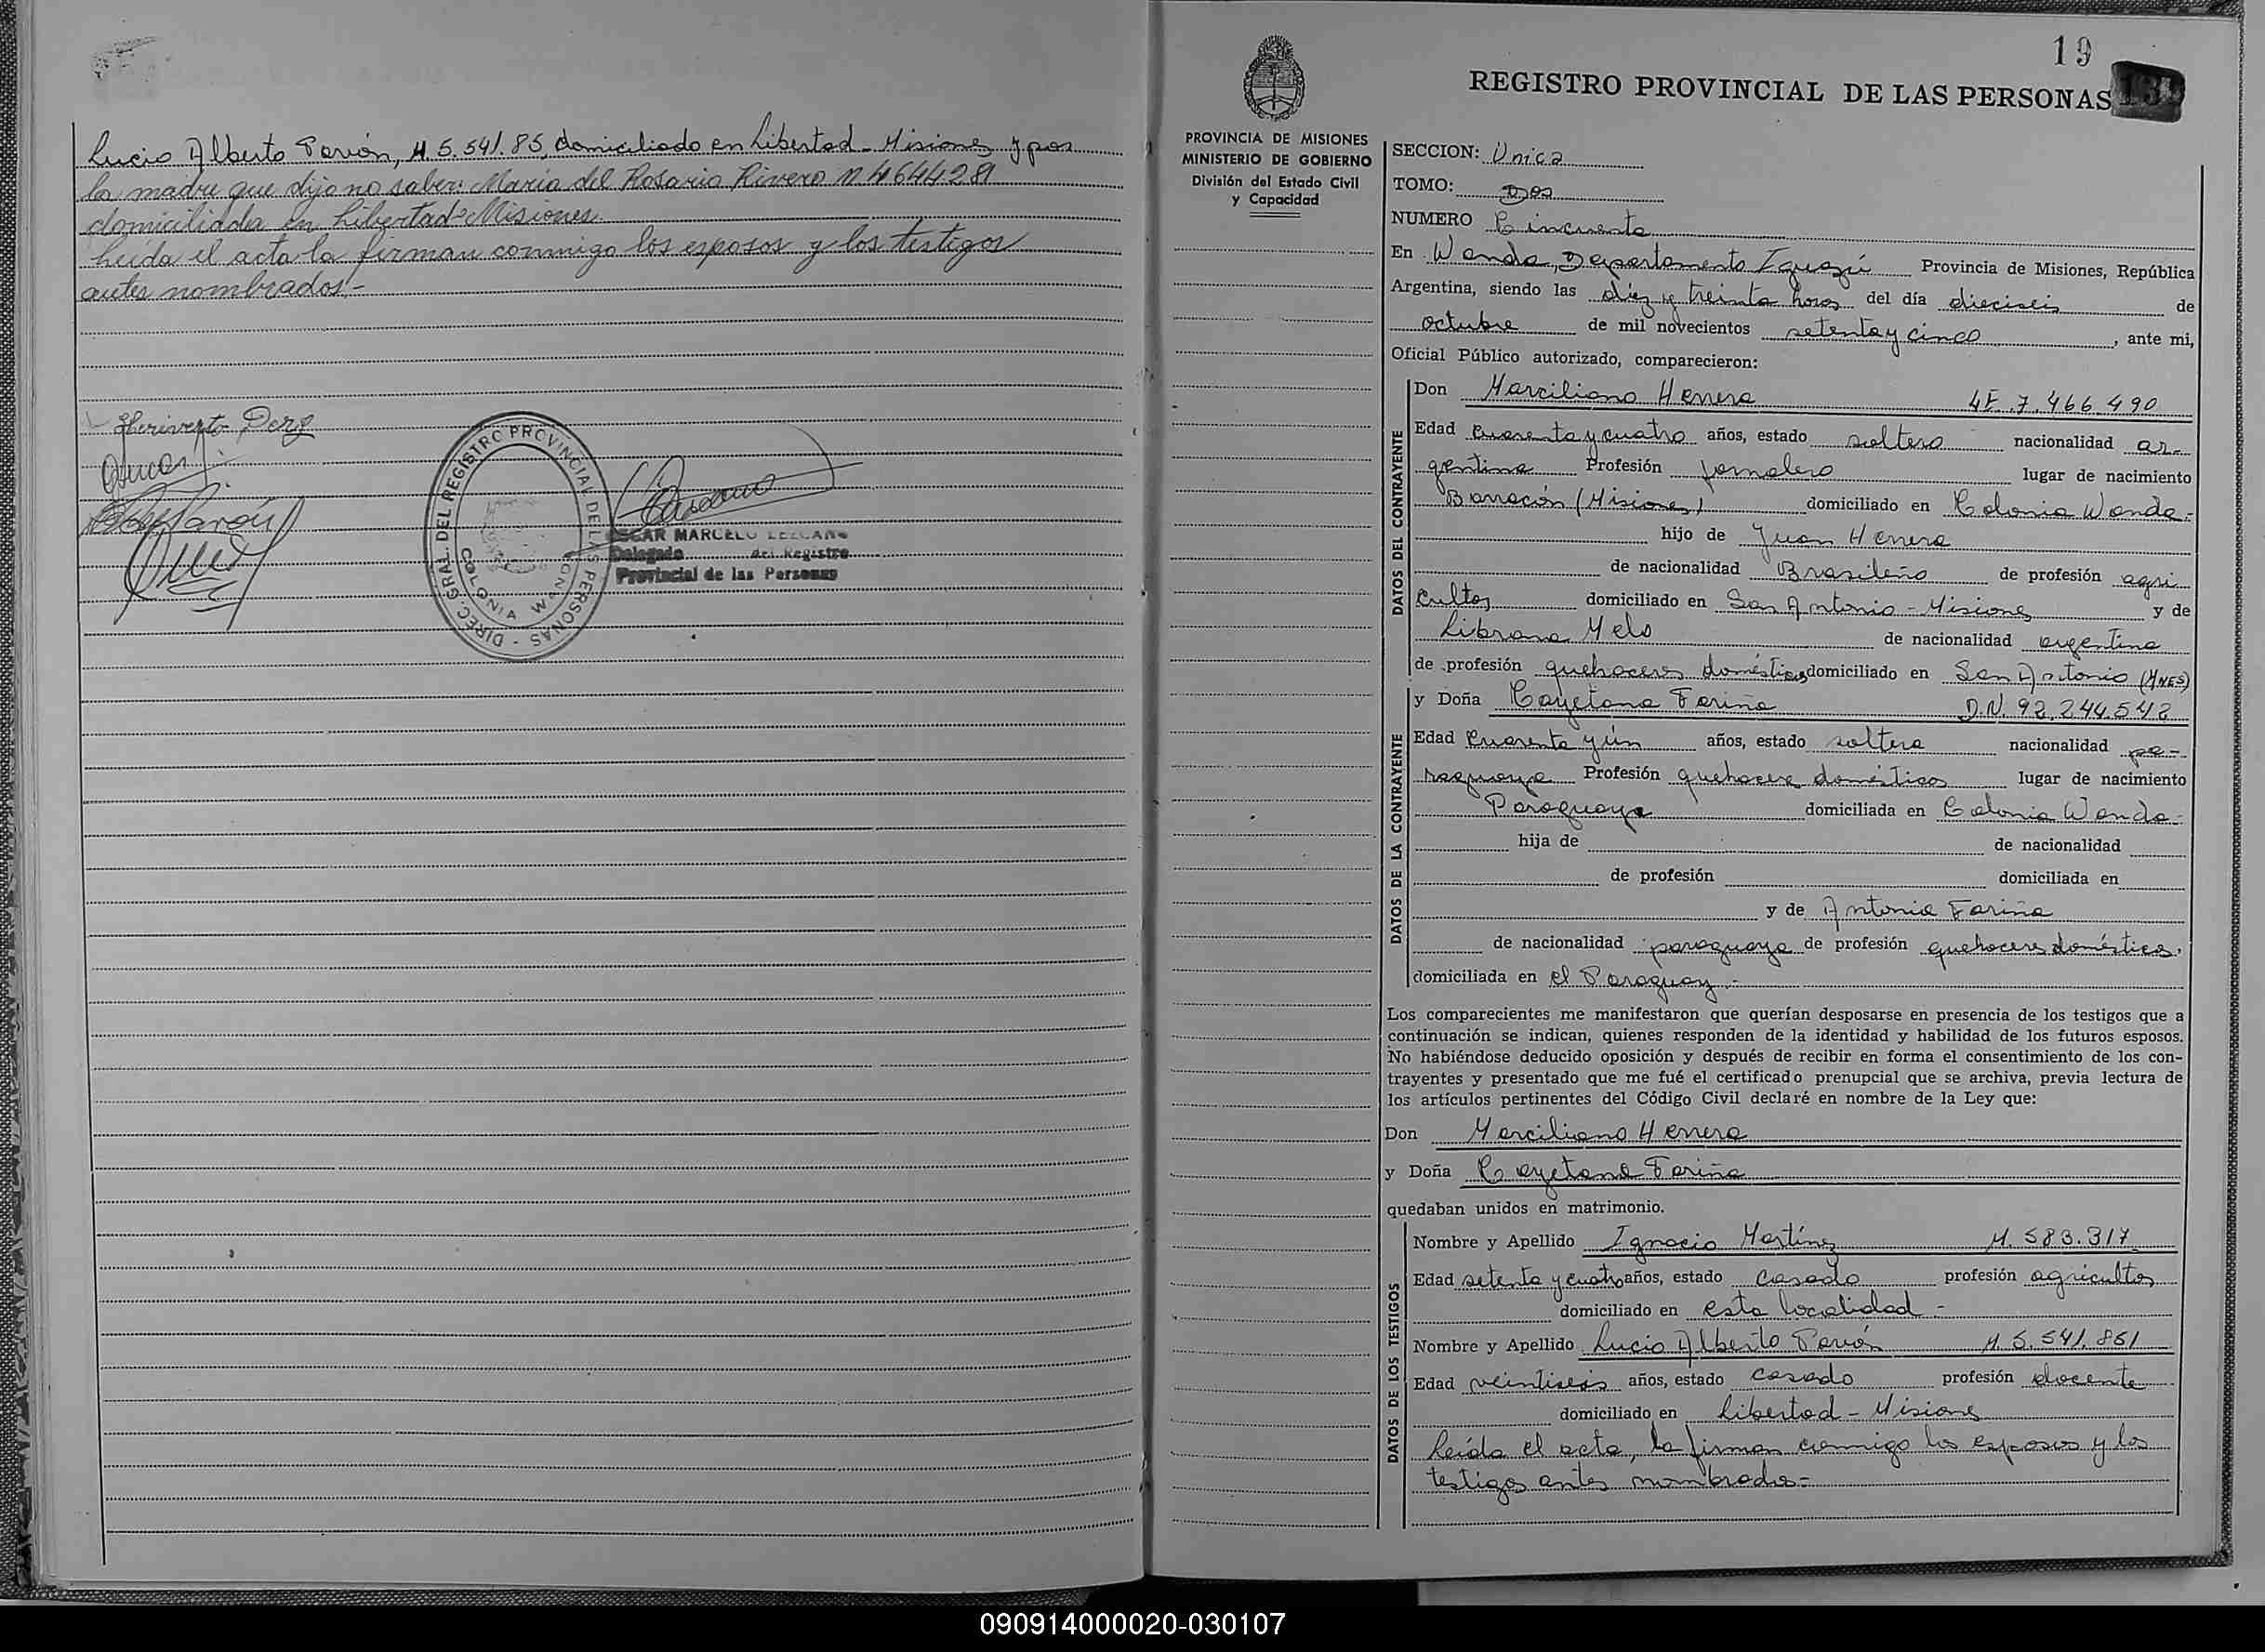 Lucio Alberto Pavón, M. 5.541.85, domiciliado en Libertad - Misiones y por
la madre que dijo no saber: María del Rosario Rivero N. 4644.281
domiciliada en Libertad-Misiones.
Leída el acta la firman conmigo los esposos y los testigos
antes nombrados.-
Herivepto Perz
DIREC. GRAL. DEL REGISTRO PROVINCIAL DE LAS PERSONAS -
COLONIA WANDA
OSCAR MARCELO LEZCANO
Delegado del Registro
Provincial de las Personas
19
REGISTRO PROVINCIAL DE LAS PERSONAS
PROVINCIA DE MISIONES
MINISTERIO DE GOBIERNO
División del Estado Civil
y Capacidad
SECCION: Unica
TOMO: Dos
NUMERO Cincuenta
En Wanda, Departamento Iguazú Provincia de Misiones, República
Argentina, siendo las diez y treinta horas del día dieciseis de
octubre de mil novecientos setenta y cinco, ante mi,
Oficial Público autorizado, comparecieron:
DATOS DEL CONTRAYENTE
Don Marciliano Herrera 7.466.490
Edad Cuarenta y cuatro años, estado soltero nacionalidad ar-
gentina Profesión jornalero lugar de nacimiento
Barracón (Misiones) domiciliado en Colonia Wanda.-
hijo de Juan Herrera
de nacionalidad Brasileño de profesión agri
cultor domiciliado en San Antonio - Misiones y de
Librana Melo de nacionalidad argentina
de profesión quehaceres domésticos domiciliado en San Antonio (MNES)
DATOS DE LA CONTRAYENTE
y Doña Cayetana Fariña D.N. 92.244.542
Edad Cuarenta y un años, estado soltera nacionalidad pa-
raguaya Profesión quehaceres domésticos lugar de nacimiento
Paraguaya domiciliada en Colonia Wanda.-
hija de de nacionalidad
de profesión domiciliada en
y de Antonia Fariña
de nacionalidad paraguaya de profesión quehaceres domésticos,
domiciliada en el Paraguay.-
Los comparecientes me manifestaron que querían desposarse en presencia de los testigos que a
continuación se indican, quienes responden de la identidad y habilidad de los futuros esposos.
No habiéndose deducido oposición y después de recibir en forma el consentimiento de los con-
trayentes y presentado que me fué el certificado prenupcial que se archiva, previa lectura de
los artículos pertinentes del Código Civil declaré en nombre de la Ley que:
Don Marciliano Herrera
y Doña Cayetana Fariña
quedaban unidos en matrimonio.
DATOS DE LOS TESTIGOS
Nombre y Apellido Ignacio Martínez M. 583.317
Edad setenta y cuatro años, estado casado profesión agricultor
domiciliado en esta localidad -
Nombre y Apellido Lucio Alberto Pavón M. 5.541.851
Edad veintiseis años, estado casado profesión docente
domiciliado en Libertad - Misiones
Leída el acta, la firman conmigo los esposos y los
testigos antes nombrados=
090914000020-030107